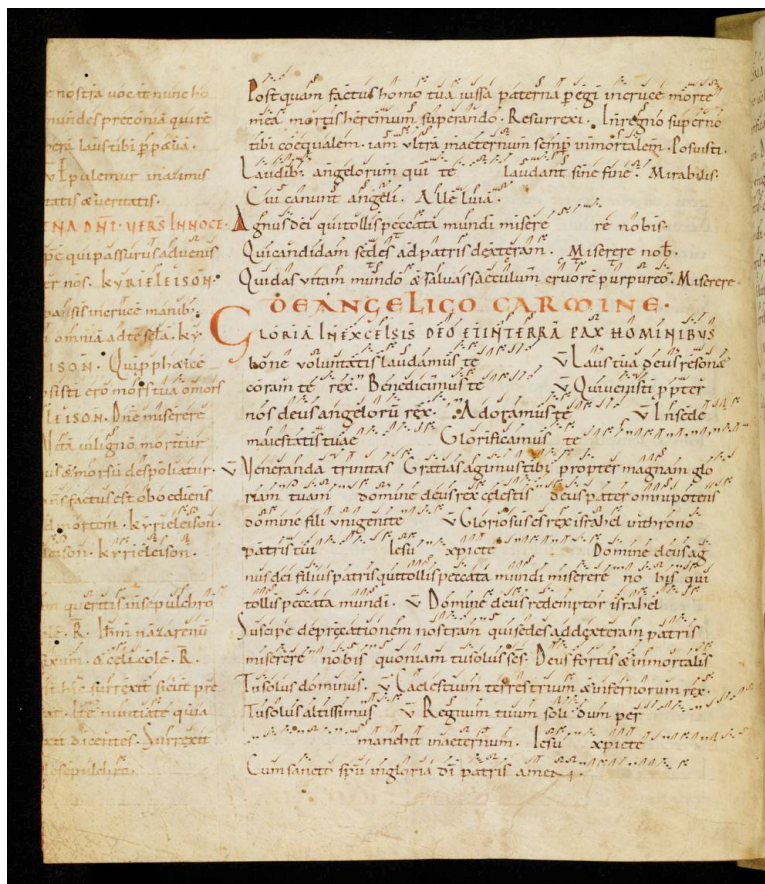 e nostra uocat nunc ho
mundes preconia quire
uera laus tibi p pæuia.
tatis & ueritatis.
NA DNI. VERS INNOCE.
pe qui passurus aduenis
er nos. kyrieleison.
passis in cruce manib;
omnia ad te sc̄la. ky
ISON. Qui p̱phæticæ
isti ero mors tua o mors
LEISON. Dn̄e miserere
Vita in ligno moritur
us & morsu despoliatur.
factus est oboediens
mortem. kyrieleison.
leison. kyrieleison.
m queritis in sepulchro
olę. R. Ihm nazarenū
ixum. o cęlicolę. R.
st hic surrexit sicut prę
at. Ite nuntiate quia
xit dicentes. Surrexit
de sepulchro.
Postquam factus homo tua iussa paterna p̱egi in cruce morte
mea mortis herennum superando. Resurrexi. In regno superno
tibi coequalem. iam ultra in aeternum semp̱ inmortalem. Posuisti.
Laudib; angelorum qui te laudant sine fine. Mirabilis.
Cui canunt angeli. Alleluia.
Agnus dei qui tollis peccata mundi misere re nobis.
Qui candidam sedes ad patris dexteram. Miserere nob̄.
Qui das uitam mundo & saluas saeculum cruore purpureo. Miserere.
DE ANGELICO CARMINE.
GLORIA IN EXCELSIS DEO ET IN TERRA PAX HOMINIBUS
bone uoluntatis laudamus te v̄ Laus tua deus resonæ
coram te rex Benedicimus te v̄ Qui uenisti p̱pter
nos deus angelorū rex. Adoramus te v̄ In sede
maiestatis tuae Glorificamus te
v̄ Ueneranda trinitas Gratias agimus tibi propter magnam glo
riam tuam domine deus rex cęlestis deus pater omnipotens
domine fili unigenite v̄ Gloriosus es rex israhel in throno
patris tui Iesu xpicte Domine deus ag
nus dei filius patris qui tollis peccata mundi miserere no bis qui
tollis peccata mundi. v̄ Domine deus redemptor israhel
Suscipe deprecationem nostram qui sedes ad dexteram patris
miserere nobis quoniam tu solus scs̄. Deus fortis & inmortalis
Tu solus dominus. v̄ Caelestium terrestrium & infernorum rex.
Tu solus altissimus v̄ Regnum tuum soli dum per
manebit in aeternum. Iesu xpicte
Cum sancto sp̄u in gloria dī patris amen.